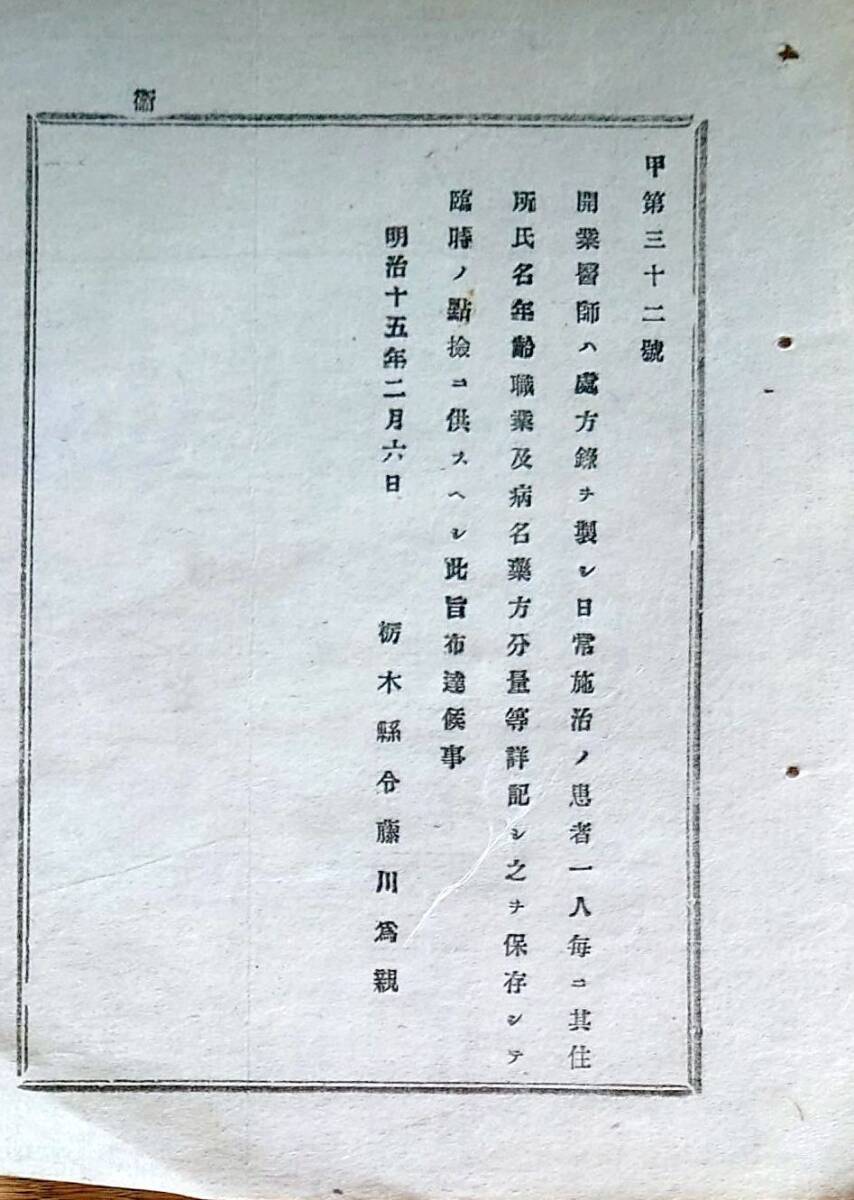 衞
甲第三十二號
開業醫師ハ處方錄ヲ製シ日常施治ノ患者一人每ニ其住
所氏名年齡職業及病名藥方分量等詳記シ之ヲ保存シテ
臨時ノ點撿ニ供スヘシ此旨布達候事
明治十五年二月六日
栃木縣令藤川爲親